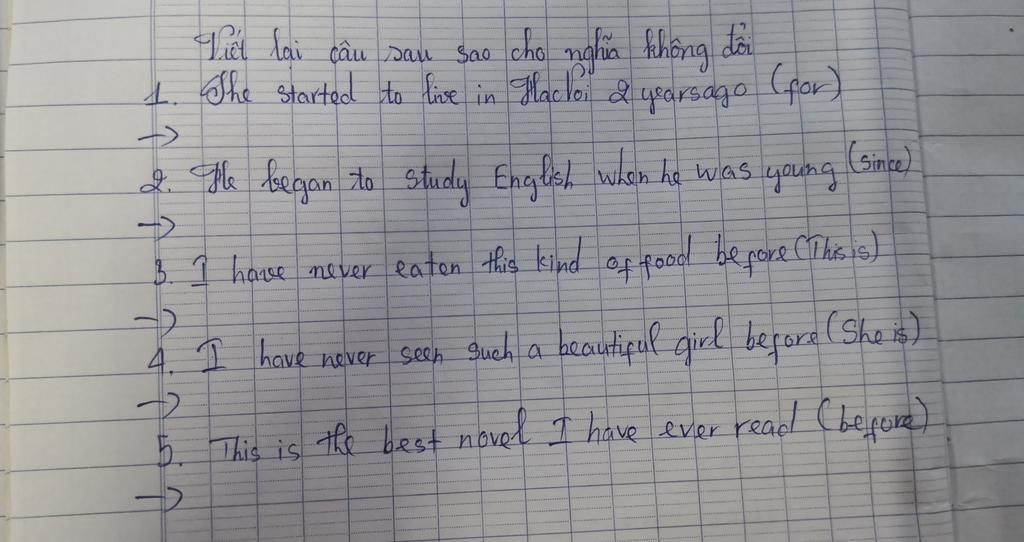 Viết lại câu sau sao cho nghĩa không đổi
1. She started to live in HaNoi 2 years ago (for)
→
2. He began to study English when he was young (since)
→
3. I have never eaten this kind of food before (This is)
→
4. I have never seen such a beautiful girl before (She is)
→
5. This is the best novel I have ever read (before)
→